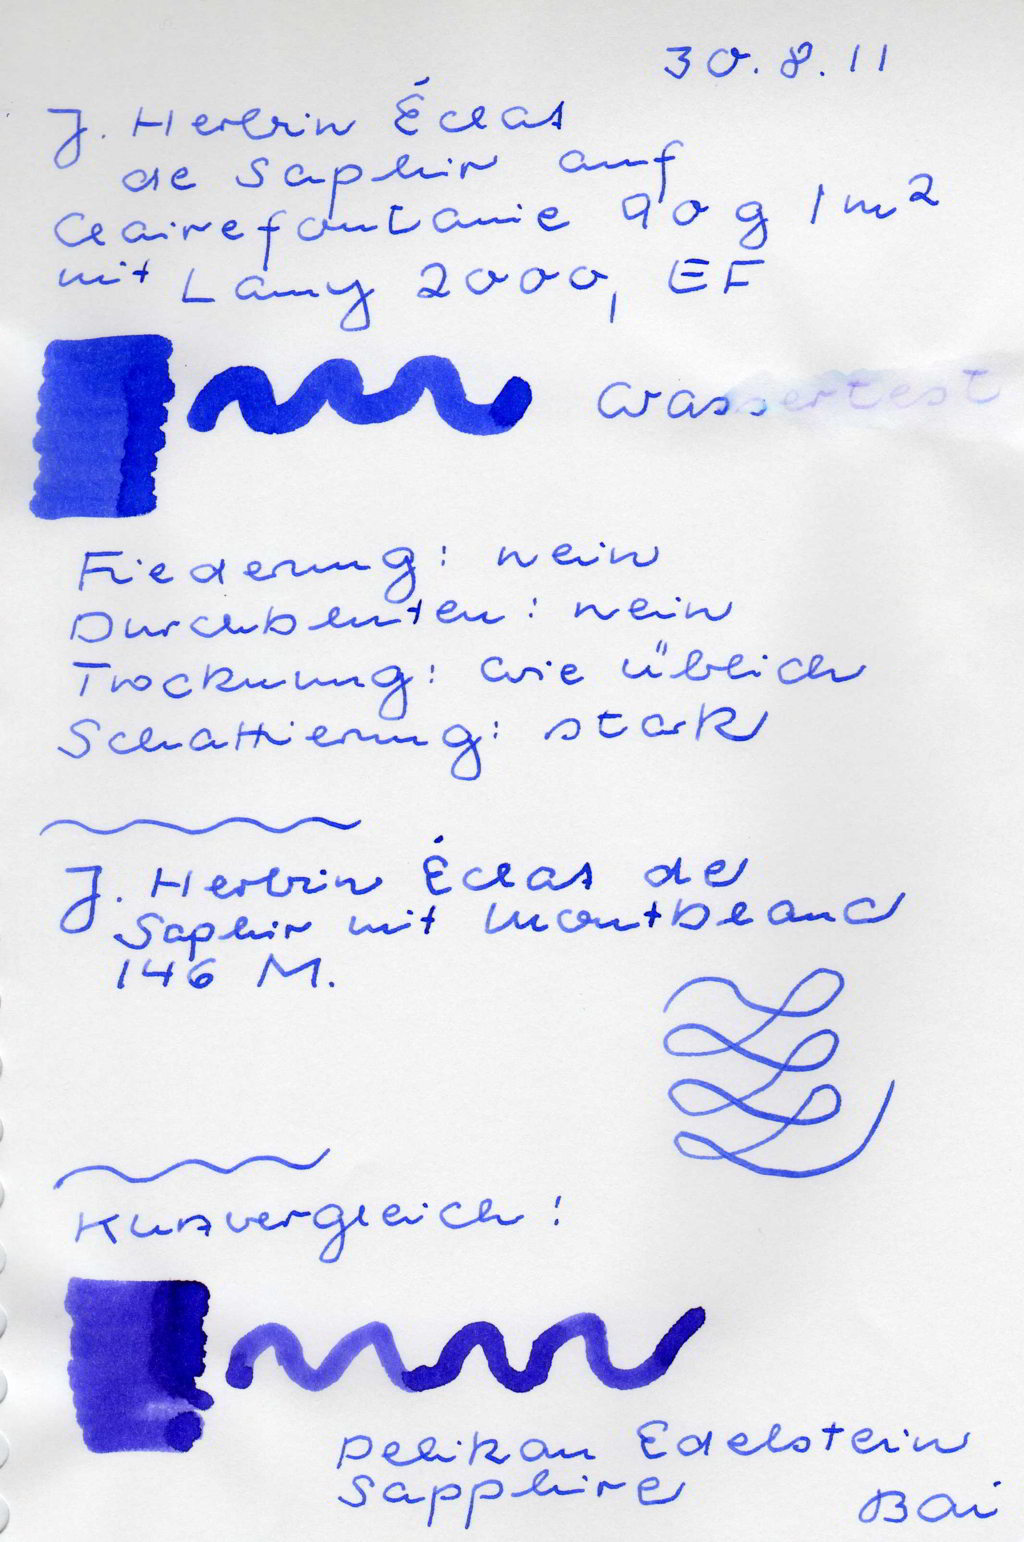 30.8.11
J. Herbin Éclat
de Saphir auf
Clairefontaine 90 g / m²
mit Lamy 2000, EF
Wassertest
Fiederung: nein
Durchbluten: nein
Trocknung: wie üblich
Schattierung: stark
J. Herbin Éclat de
Saphir mit Montblanc
146 M.
Kurzvergleich:
Pelikan Edelstein
Sapphire
Bai